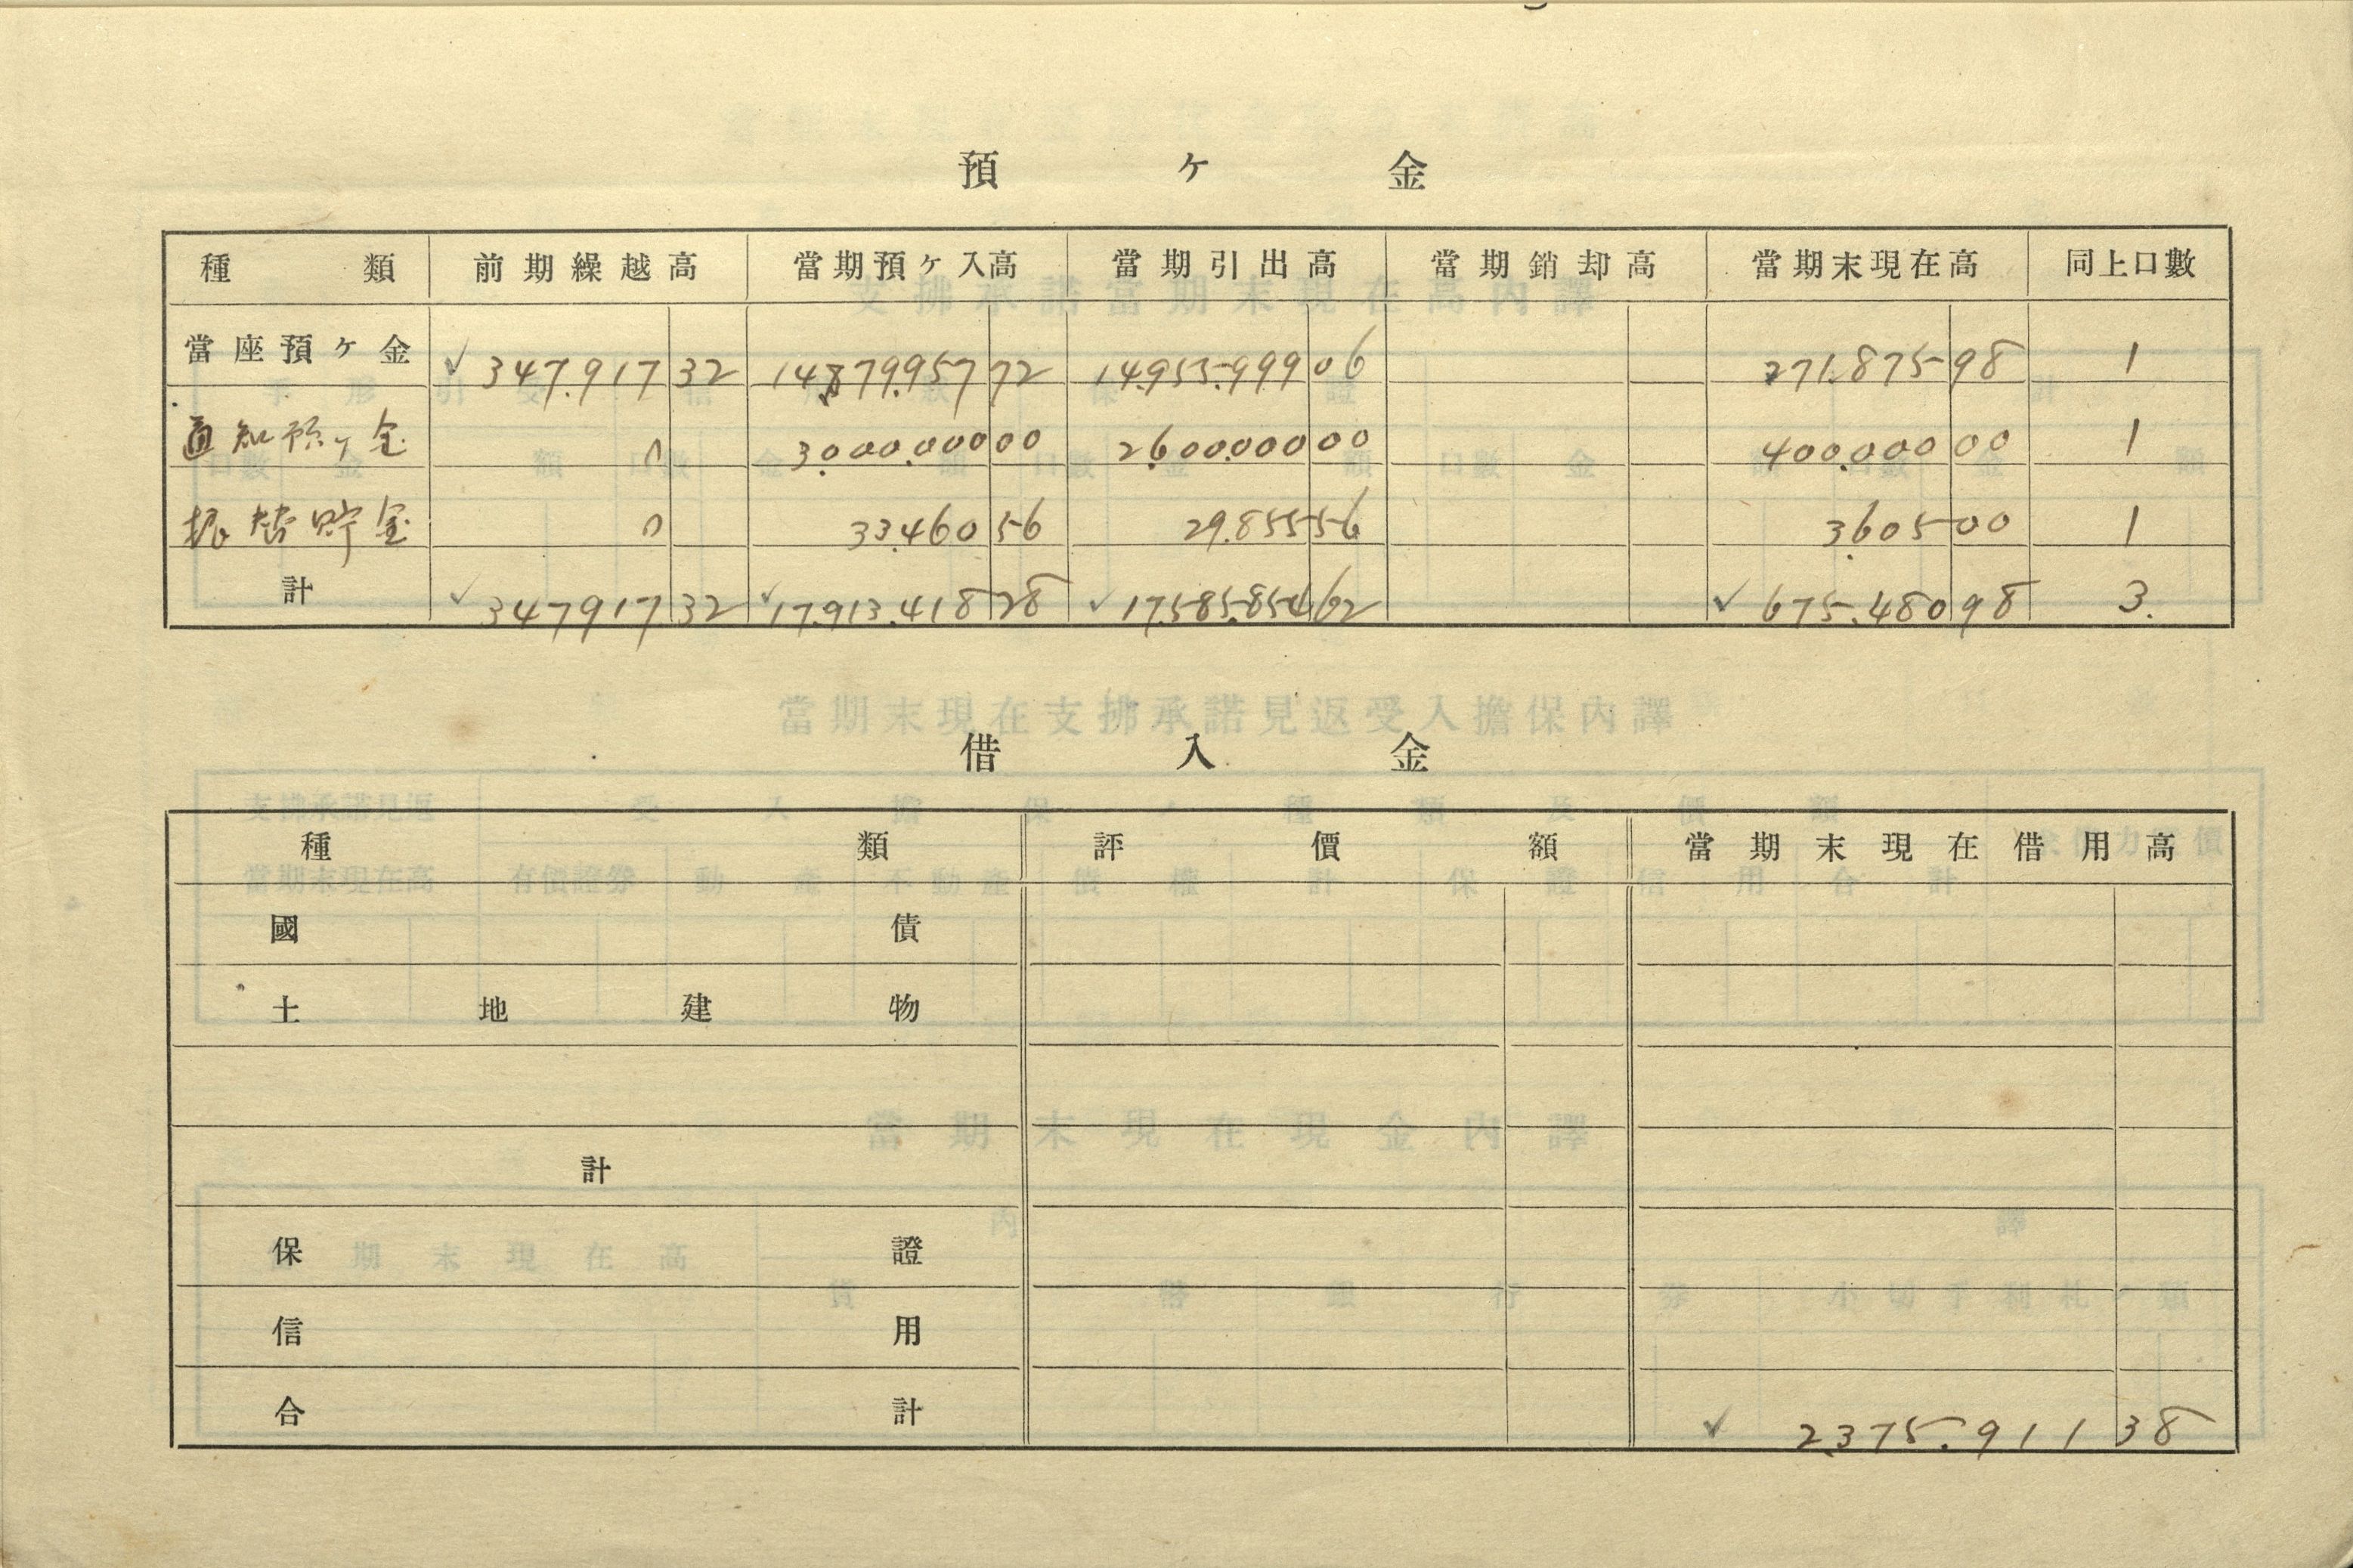 預ケ金
種類 前期繰越高 當期預ケ入高 當期引出高 當期銷却高 當期末現在高 同上口數
當座預ケ金 ✓347.917 32 14.879.957 72 14.955.999 06 271.875 98 1
通知預ケ金 0 3.000.000 00 2.600.000 00 400.000 00 1
振替貯金 0 33.460 56 29.855 56 3.605 00 1
計 ✓347917 32 ✓17.913.418 28 ✓17.585.854 62 ✓675.480 98 3.
借入金
種類 評價額 當期末現在借用高
國債
土地建物
計
保證
信用
合計 ✓2.375.911 38